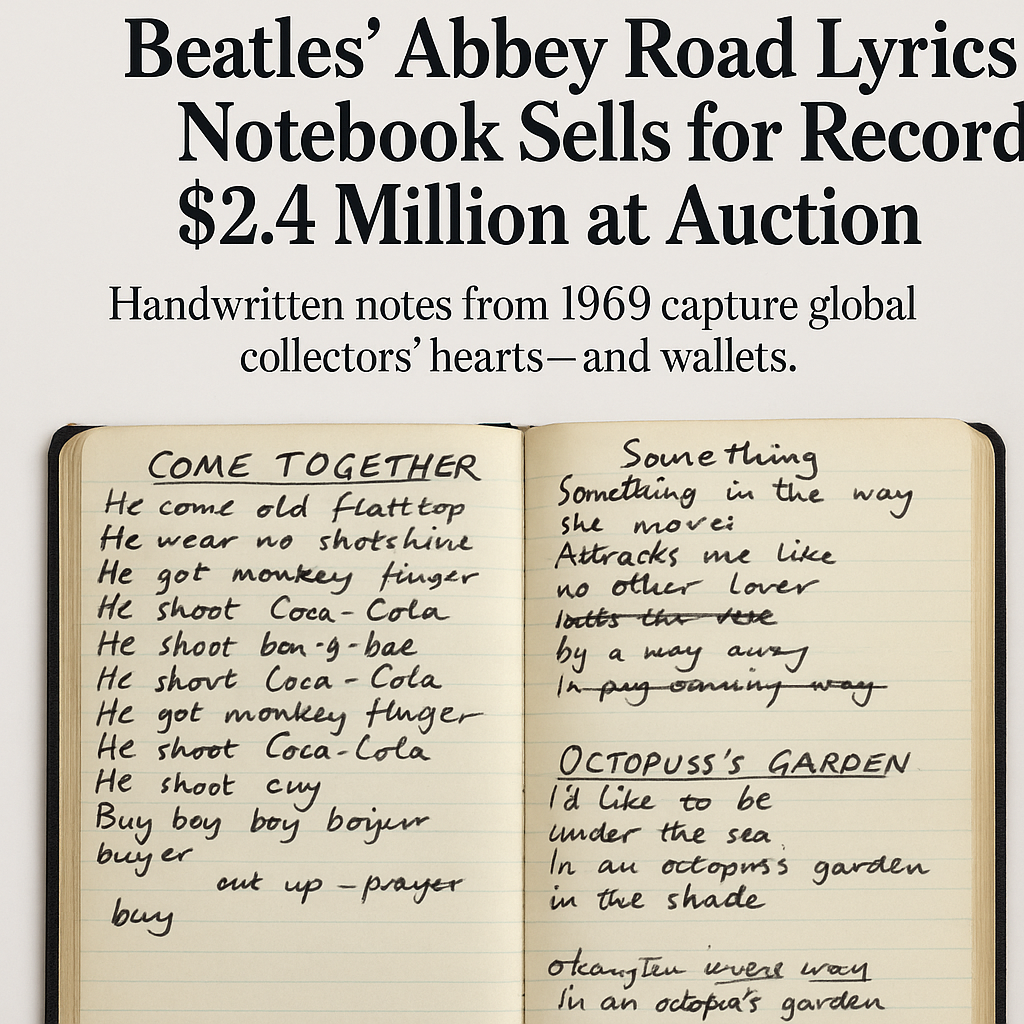 Beatles’ Abbey Road Lyrics
Notebook Sells for Record
$2.4 Million at Auction
Handwritten notes from 1969 capture global
collectors’ hearts—and wallets.
COME TOGETHER
He come old flatttop
He wear no shotshine
He got monkey finger
He shoot Coca-Cola
He shoot bon-g-bae
He shovt Coca-Cola
He got monkey fluger
He shoot Coca-Cola
He shoot cuy
Buy boy boy
buyer
cut up – prayer
buy
Something
Something in the way
she move:
Attracks me like
no other lover
by a way away
In way
OCTOPUSS'S GARDEN
I'd like to be
under the sea
In an octopuss garden
in the shade
way
In an octopia's garden